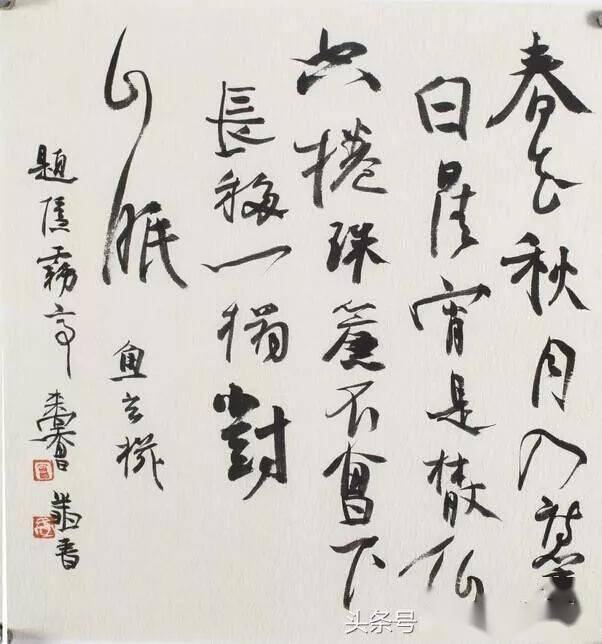 春花秋月入詩
白日清宵是散仙
空捲珠簾不曾下
長移一榻對
山眠
魚玄機
題隱霧亭
書
头条号